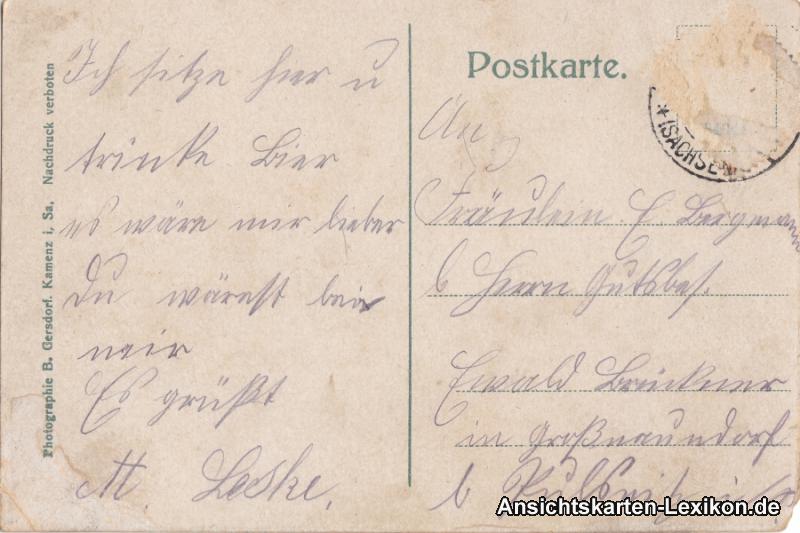 Photographie B. Gersdorf. Kamenz i, Sa, Nachdruck verboten
Ich sitze hier u
trinke Bier
es wäre mir lieber
Du wärest bei
mir
Es grüßt
M. Leske.
Postkarte.
* (SACHSEN
An
Fräulein E. Bergmann
b Herrn Gutsbes.
Ewald Brückner
in Großnaundorf
b Pulsnitz i. Sa.
Ansichtskarten-Lexikon.de